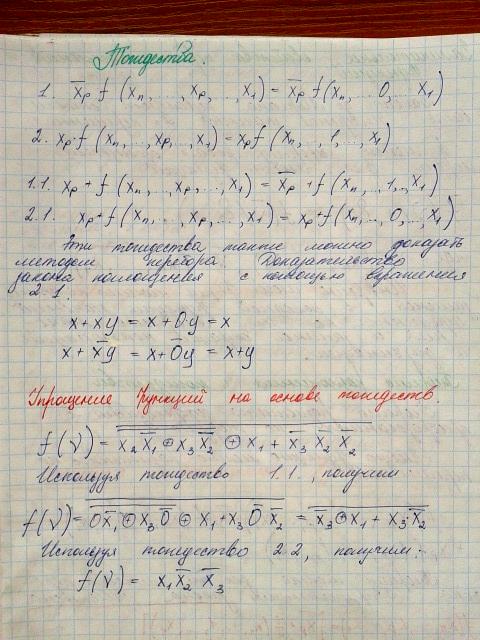 Тождества.
1. x̄p f (xn, ..., xp, .., x1) = x̄p f(xn, .. 0, ... x1)
2. xp·f (xn, ..., xp, ..., x1) = xp f (xn, .., 1, ..., x1)
1.1. xp + f (xn, ..., xp, ..., x1) = x̄p + f (xn, .., 1, .., x1)
2.1. xp+f(xn, ..., xp, ..., x1) = xp+f(xn, .., 0, ..., x1)
Эти тождества также можно доказать
методом перебора. Доказательство
закона поглощения с помощью выражения
2.1.
x+xy = x+0·y = x
x + x̄y = x+0̄y = x+y
Упрощение функций на основе тождеств.
f(v) = x2 x̄1 ⊕ x3 x̄2 ⊕ x1 + x̄3 x̄2 x̄2
Используя тождество 1.1., получим:
f(v) = 0x̄1 ⊕ x3 0̄ ⊕ x1 + x3 0̄ x̄2 = x3 ⊕ x1 + x3·x̄2
Используя тождество 2.2, получим:
f(v) = x1 x̄2 x̄3